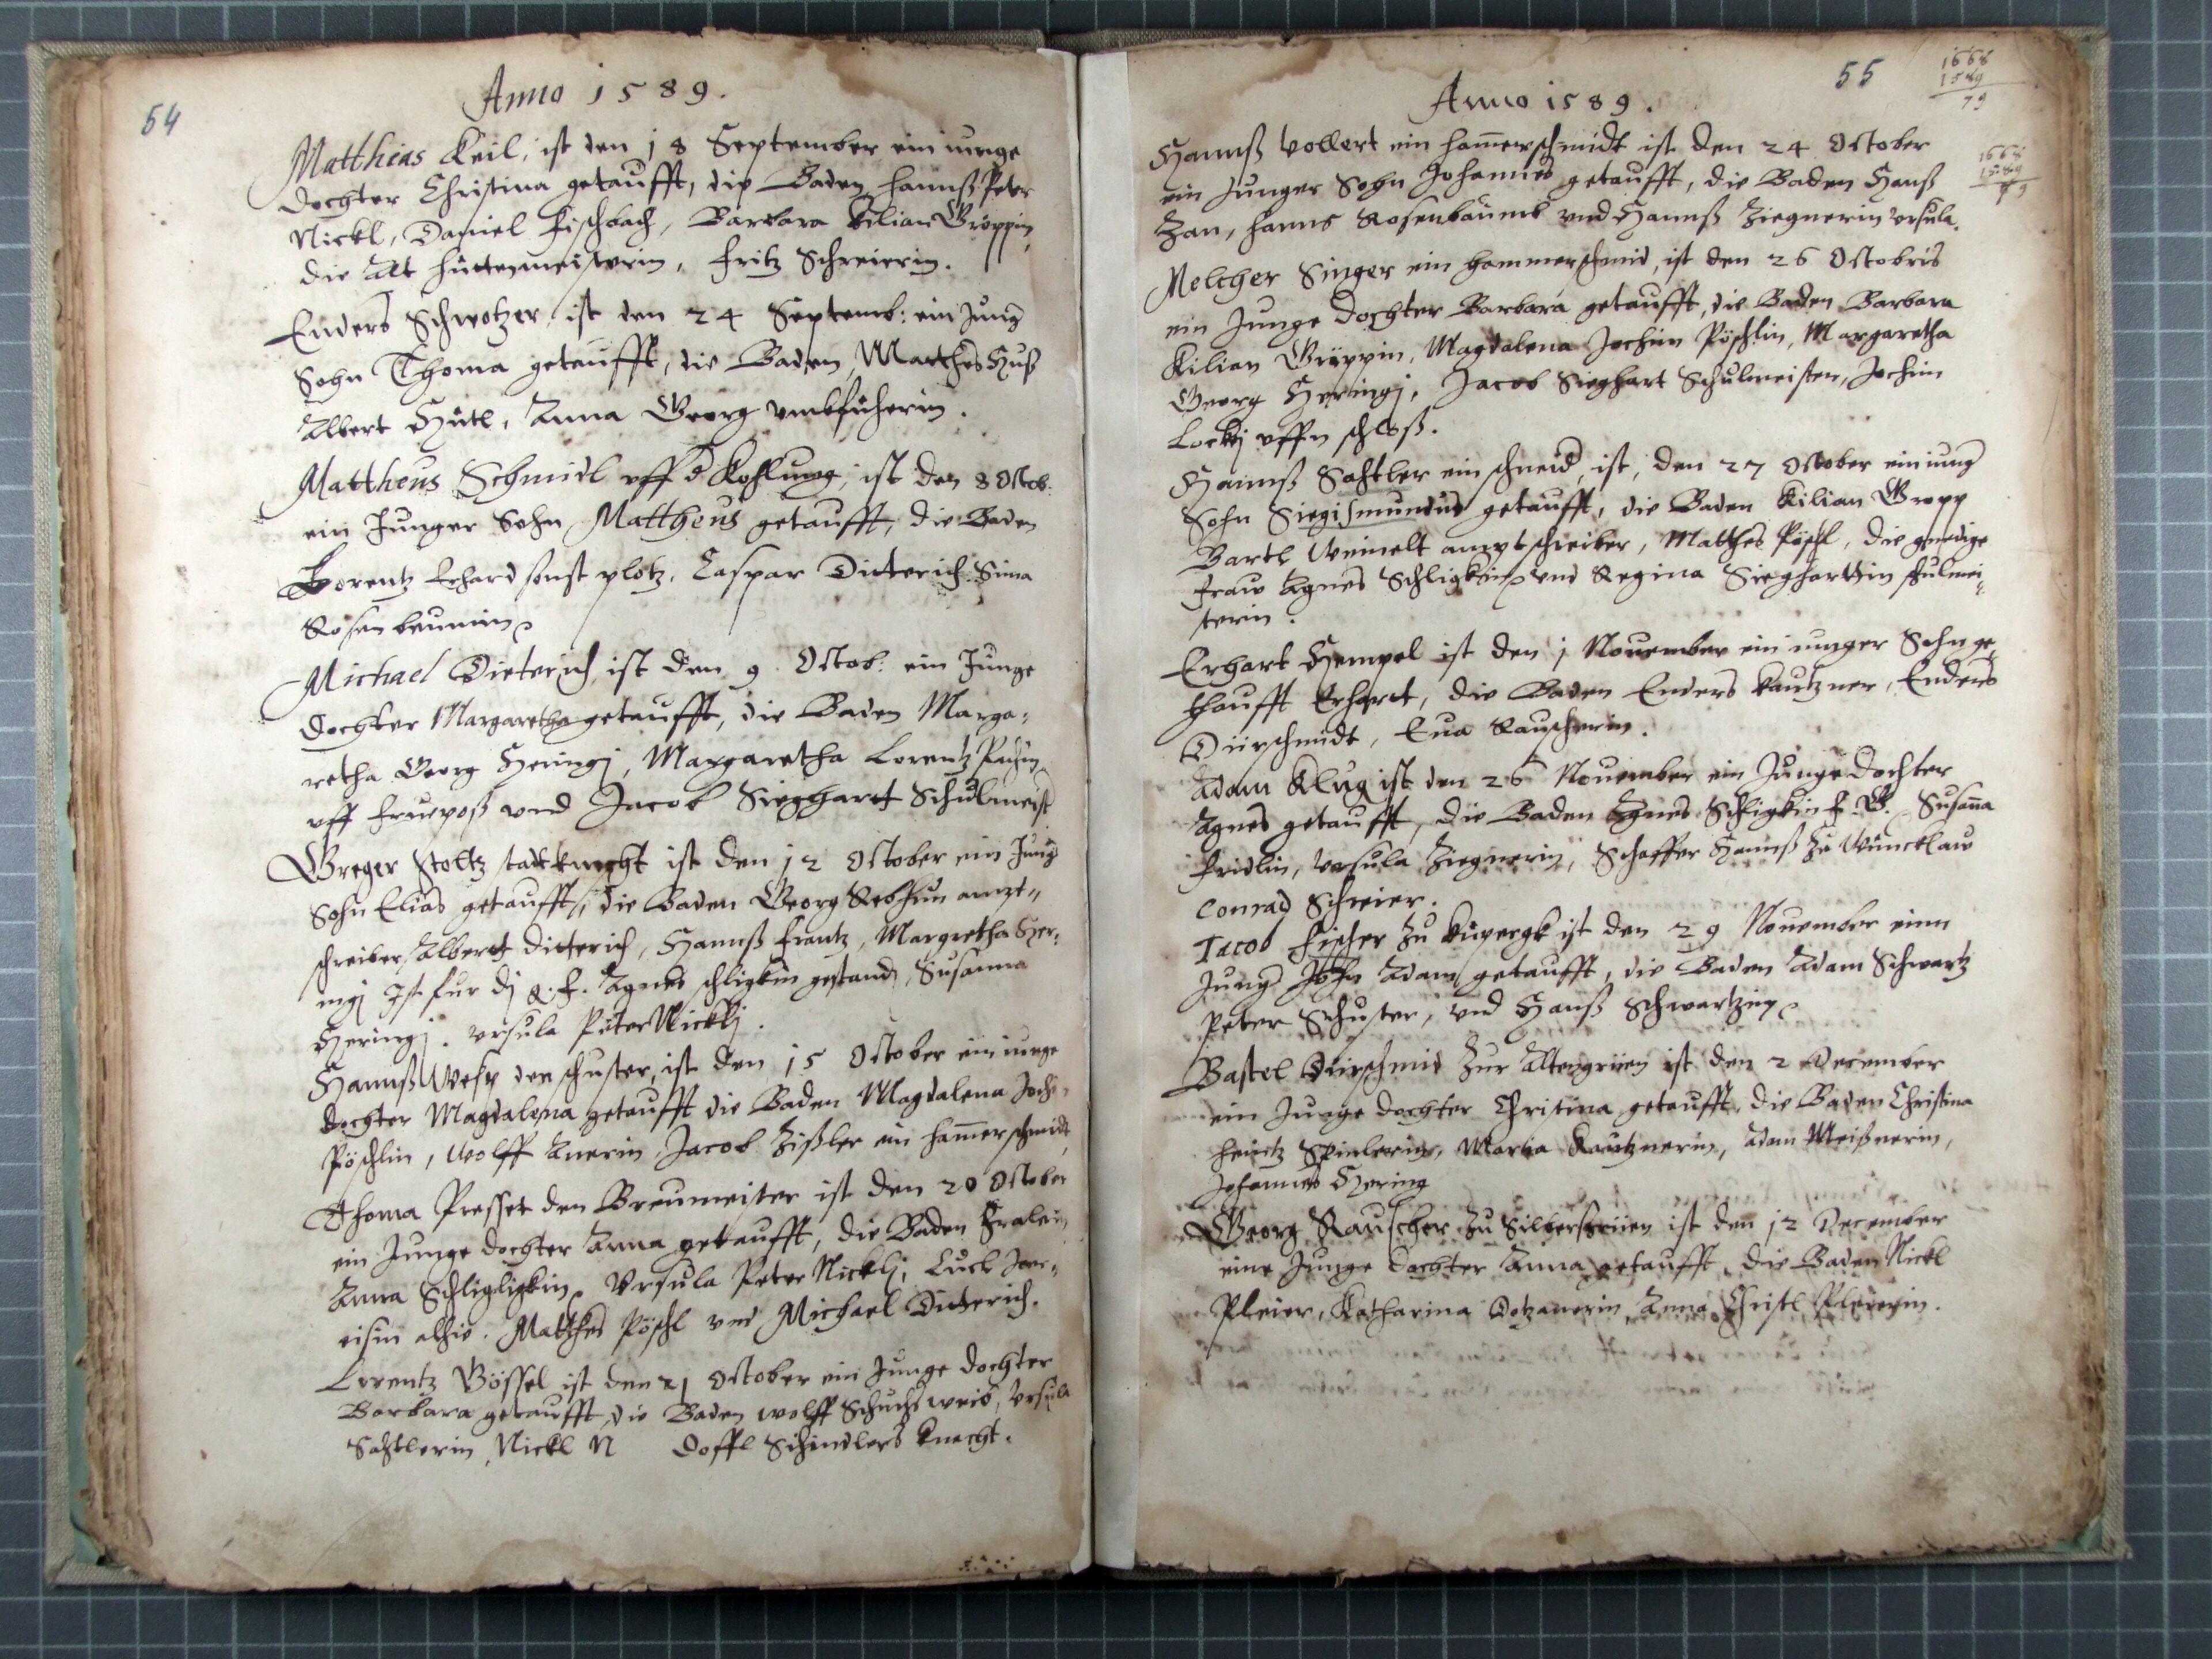 54
Anno 1589.
Matthias Keil, ist den 18 September ein iunge
dochter Christina getaufft, die Baden Hannß Peter
Nickl, Daniel Fischbach, Barbara Kilian Gröppin,
die Alt hüttenmeisterin, Fritz Schreierin.
Enders Schwotzer, ist den 24 Septemb: ein Jung
Sohn Thoma getaufft, die Baden, Matthes Huß
Albert Hütl, Anna Georg
Mattheus Schmidl uff d Kohlung, ist den 8 Octob.
ein Junger Sohn Mattheus getaufft, die Baden
Lorentz Erhard sonst plotz, Caspar Dieterich Sima
Rosenbeumin
Michael Dieterich ist den 9. Octob: ein Junge
dochter Margaretha getaufft, die Baden Marga-
retha Georg Heringj, Margaretha Lorentz
uff und Jacob Sieghart Schulmeist
Greger Stoltz stattknecht ist den 12 October ein Jung
Sohn Elias getaufft, die Baden Georg Rebhun ampt-
schreiber, Albert Dieterich, Hannß Frantz, Margretha Her-
ingj Ist fur dj g. f. Agnes schligkin gestand, Susanna
Heringj. Ursula Peter Nicklj.
Hannß Wesp den schuster, ist den 15 October ein iunge
dochter Magdalena getaufft die Baden Magdalena Joch-
Pöschlin, Wolff Anerin, Jacob Zißler ein hammerschmidt,
Thoma Presset den Breumeister ist den 20 October
ein Junge dochter Anna getaufft, die Baden Fralein
Anna Schligligkin, Ursula Peter Nicklj, Luck
alhie. Matthes Pöschl und Michael Dieterich.
Lorentz Bössel ist den 21 October ein Junge dochter
Barbara getaufft, die Baden Wolff Schuchs weib, Ursula
Sachtlerin, Nickl N Doffl Schindlers knecht.
55
1668
1589
79
Anno 1589.
1668
1589
79
Hannß Vollert ein hamerschmidt ist den 24 October
ein Junger Sohn Johannes getaufft, die Baden Hanß
Zan, Hanns Rosenbaumb und Hannß Ziegnerin Ursula.
Melcher Singer ein hammerschmid, ist den 26 Octobris
ein Junge dochter Barbara getaufft, die Baden Barbara
Kilian Gröppin, Magdalena Jochim Pöschlin, Margaretha
Georg Heringj, Jacob Sieghart Schulmeister, Jochim
uffn schloß.
Hannß Sachtler ein schneid, ist, den 27 October ein iung
Sohn Siegismundus getaufft, die Baden Kilian Gropp
Bartl Weinelt ampt schreiber, Matthes Pöschl, die gnedige
Fraw Agnes Schligkin und Regina Sieghartin schulmei-
sterin.
Erhart Hempel ist den 1 November ein iunger Sohn ge
thaufft Erhart, die Baden Enders Kautzner, Enders
Dürschmidt, Eva Rauscherin.
Adam Klug ist den 26 November ein Junge dochter
Agnes getaufft, die Baden Agnes Schligkin F. G. Susana
Fridlin, Ursula Ziegnerin, Schaffer Hannß zu Wuncklaw
Conrad Schreier.
Jacob Fischer zu Küpergk ist den 29 November einn
Jung Sohn Adam getaufft, die Baden Adam Schwartz
Peter Schuster, und Hanß Schwartzin
Bastel Dürschmid zur Altengrüen ist den 2 December
ein Junge dochter Christina getaufft, die Baden Christina
Heintz Spinlerin, Maria Kautznerin, Adam Meißnerin,
Johannes Hering
Georg Rauscher zu Silbersgrüen ist den 12 December
eine Junge dochter Anna getaufft, die Baden Nickl
Pleier, Katharina Dotzauerin, Anna Christl Pleierin.